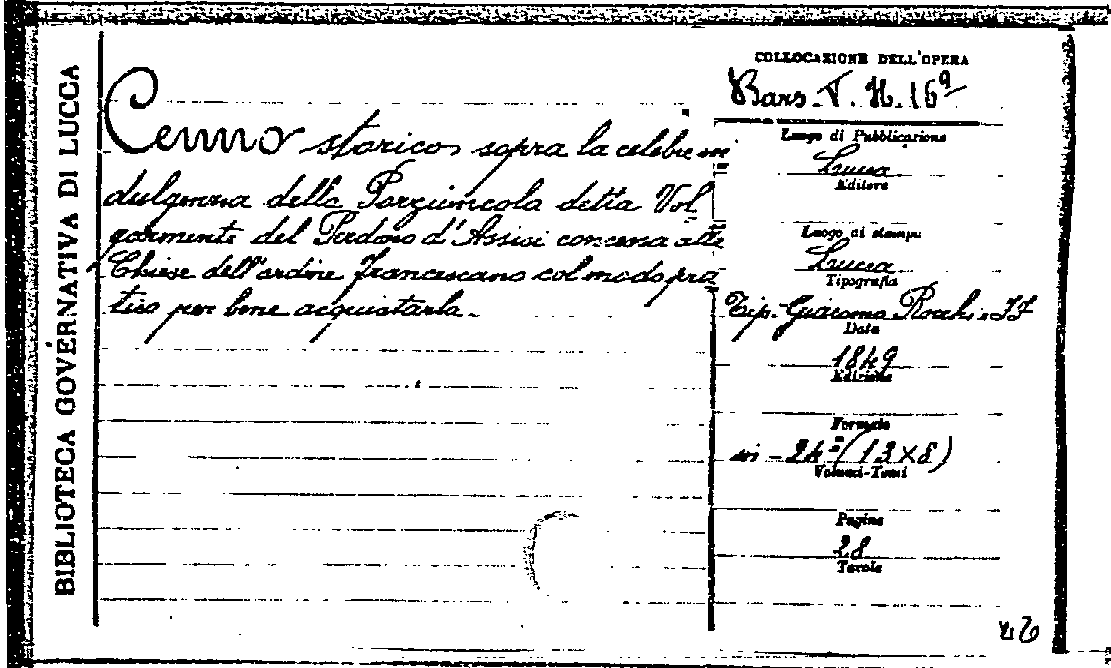 BIBLIOTECA GOVERNATIVA DI LUCCA
Cenno storico sopra la celebre in
dulgenza della Porziuncola detta Vol
garmente del Perdono d'Assisi concessa alle
Chiese dell'ordine francescano col modo pra
tico per bene acquistarla.
COLLOCAZIONE DELL'OPERA
Bars. T. H. 16ª
Luogo di Pubblicazione
Lucca
Editore
Luogo di stampa
Lucca
Tipografia
Tip. Giacomo Rocchi e FF
Data
1849
Edizione
Formato
in - 24º (13×8)
Volumi-Tomi
Pagine
28
Tavole